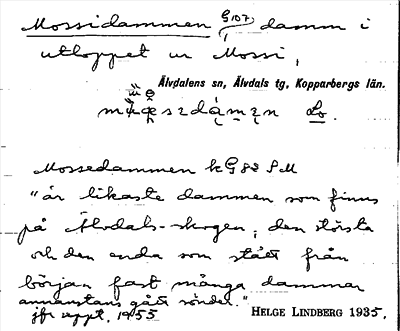 Mossidammen G107, damm i
utloppet ur Mossi,
Älvdalens sn, Älvdals tg, Kopparbergs län.
Lo.
Mossedammen k G 82 S M
"är likaste dammen som finns
på Älvdals-skogen, den största
och den enda som stått från
början fast många dammar
annanstans gått sönder."
jfr uppt. 1955
HELGE LINDBERG 1935.